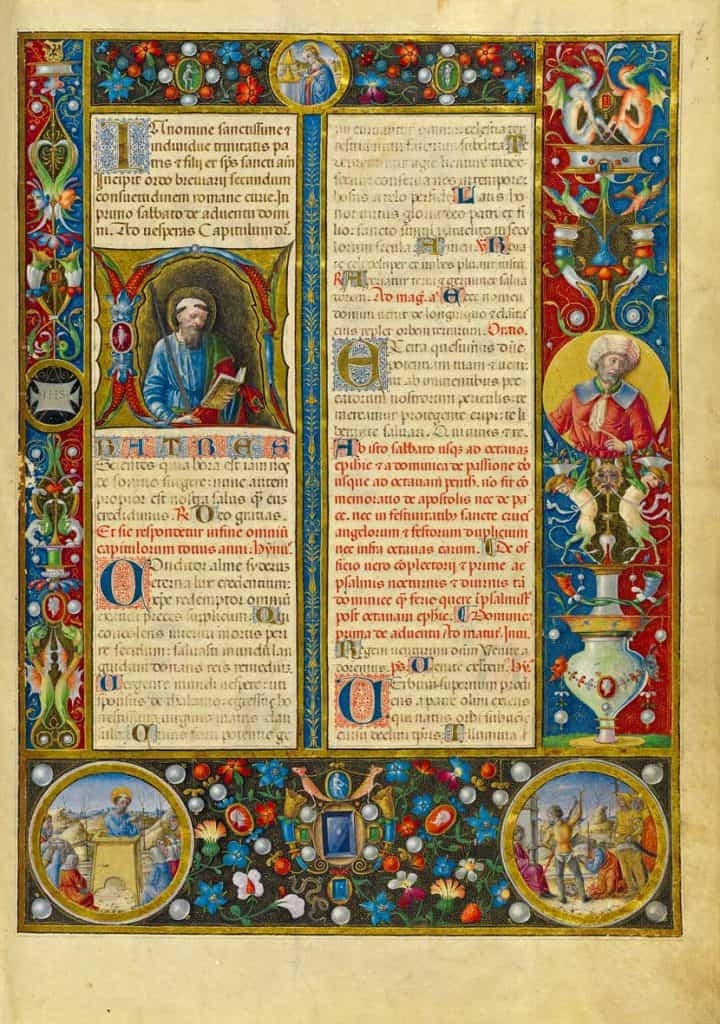 In nomine sanctissime ⁊
indiuidue trinitatis pa
tris ⁊ filij et sp̄s sancti am̄
Incipit ordo breuiarij secundum
consuetudinem romane curie. In
primo sabbato de aduentu domi
ni. Ad vesperas Capitulum
RATRES
Scientes quia hora est iam nos
de somno surgere: nunc autem
propior est nostra salus q̄ cuȝ
credidimus. R Deo gratias.
Et sic respondetur in fine omniū
capitulorum totius anni. hȳnus
Onditor alme syderus
eterna lux credentium:
xp̄e redemptor omniū
exaudi preces supplicum. Qui
condolens interitu mortis peri
re seculum: saluasti mundū lan
guidum donans reis remediuȝ.
Vergente mundi vespere: uti
sponsus de thalamo: egressus ho
nestissima uirginis matris clau
sula. Cuius forti potentie ge
nu curuantur omnia: celestia ter
restria nutu fatentur subdita. Te
hostis a telo perfidi. Laus ho
nor uirtus gloria deo patri et fi
lio: sancto simul paraclito in secu
lorum secula. Amen. Rora
te celi desuper et nubes pluant iustū
R Aperiatur terra ⁊ germinet salua
torem. Ad mag. a. Ecce nomen
domini uenit de longinquo ⁊ claritas
eius replet orbem terrarum. Oratio.
Excita quesumus dn̄e
potentiam tuam ⁊ ueni:
ut ab imminentibus pec
catorum nostrorum periculis: te
mereamur protegente eripi: te li
berante saluari. Qui uiuis ⁊ re.
Ab isto sabbato usq̄ ad octauaȝ
epiph̄ie ⁊ a dominica de passione do
usque ad octauam penth. no fit co
memoratio de apostolis nec de pa
ce. nec in festiuitatib; sancte crucꝭ
angelorum ⁊ festorum duplicium
nec infra octauas earum. De of
ficio uero cōplectorij ⁊ prime ac
psalmis nocturnis ⁊ diurnis tā
dominice q̄ ferie quere ī psalmist
post octauam epiph̄ie. Dominica
prima de aduentu Ad matut. Inui.
Regem uenturum dominum Venite a
doremus. ps. Venite exultem. hȳ.
Verbum supernum prodi
ens a patre olim exiens
qui natus orbi subuenis
cursu decliui tp̄ris: Illumina
IHS